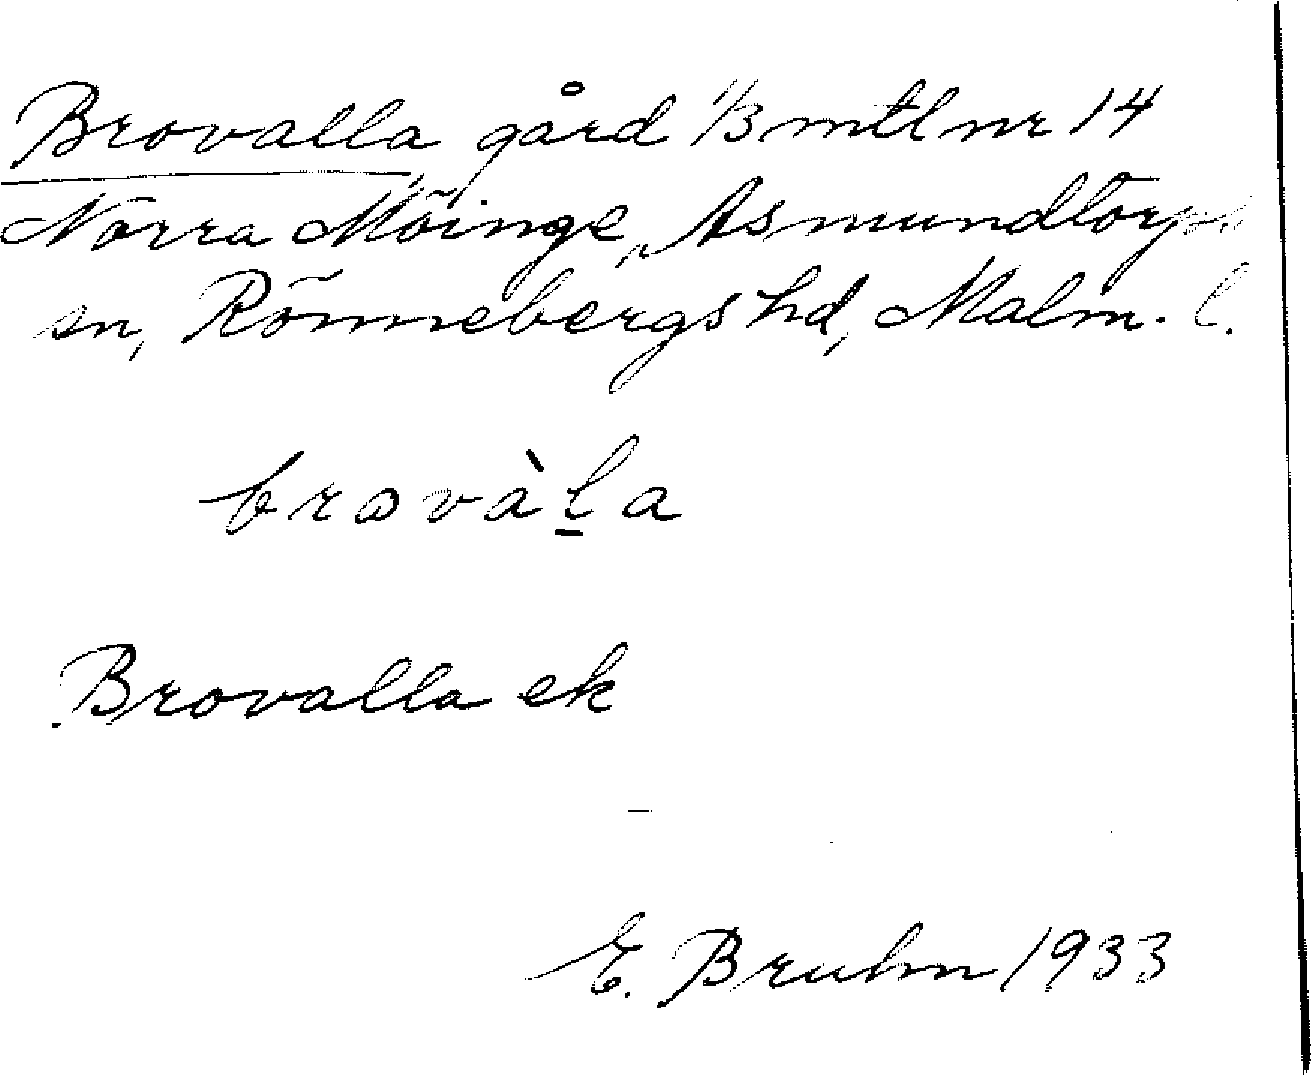 Brovalla gård 1/3 mtl nr 14
Norra Möinge, Asmundtorps
sn, Rönnebergs hd, Malm. l.
brovàl̠a
Brovalla ek
E. Bruhn 1933